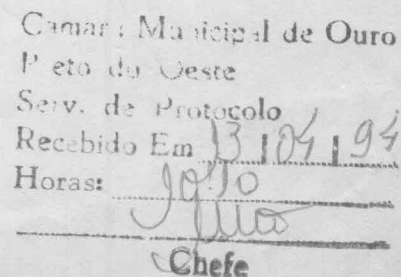 Camara Municipal de Ouro
Preto do Oeste
Serv. de Protocolo
Recebido Em 13 / 04 / 94
Horas:
Chefe